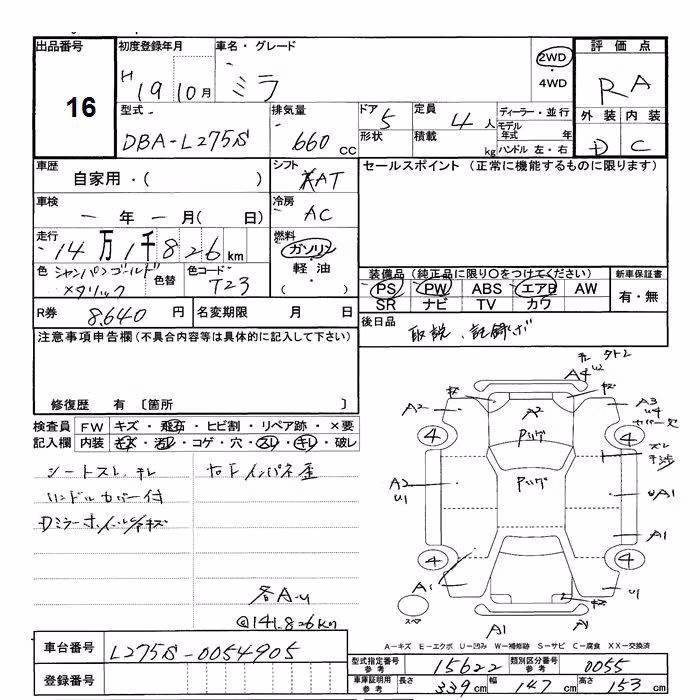 出品番号
16
初度登録年月
H 19 10月
車名・グレード
ミラ
2WD
・
4WD
評価点
RA
外装 内装
D C
型式
DBA-L275S
排気量
660 CC
ドア 5
形状
定員 4人
積載 kg
ディーラー・並行
モデル年式 年
ハンドル 左・右
車歴
自家用・( )
シフト
AT
セールスポイント (正常に機能するものに限ります)
車検
ー年ー月( 日)
冷房
AC
走行
14万1千826km
燃料
ガソリン
・
軽油
・
( )
色 シャンパンゴールド
メタリック
色替
色コード
T23
装備品 (純正品に限り○をつけてください)
PS PW ABS エアB AW
SR ナビ TV カワ
新車保証書
有・無
R券 8,640円
名変期限 月 日
後日品
取説、記録ボ
注意事項申告欄(不具合内容等は具体的に記入して下さい)
修復歴 有 〔箇所 〕
検査員記入欄
FW キズ・飛石・ヒビ割・リペア跡・×要
内装 キズ・汚レ・コゲ・穴・スレ・キレ・破レ
シートスレ、チレ
ハンドルカバー付
インパネ歪
各A.U
@141.826km
A4
A2
A2
A3
U4
カバー欠
4
4
Pツゲ
Pツゲ
A2
U1
スレ
UA1
A1
4
4
A1
U1
スペア
A1
A1
A-キズ E-エクボ U-凹み W-補修跡 S-サビ C-腐食 XX-交換済
車台番号 L275S-0054905
登録番号
型式指定番号 参考 15622
類別区分番号 参考 0055
車庫証明用 参考
長さ 339cm 幅 147cm 高さ 153cm